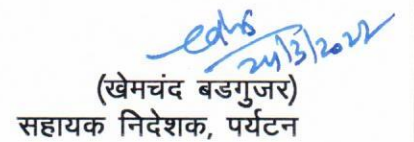 24/3/2022
(खेमचंद बडगुजर)
सहायक निदेशक, पर्यटन